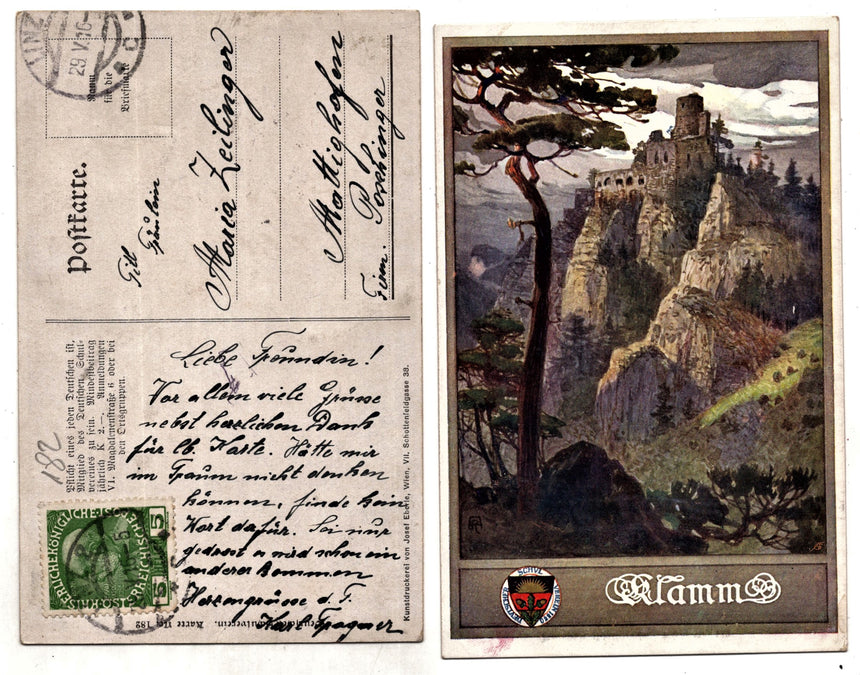 LINZ
29.V.16
Raum
für die
Briefmarke
Postkarte.
Frl
Fräulein
Maria Zeilinger
Mattighofen
Firm. Poschinger
Pflicht eines jeden Deutschen ist,
Mitglied des Deutschen Schul-
vereines zu sein. Mindestbeitrag
jährlich K 2.—. Anmeldungen
VI. Magdalenenstraße 6 oder bei
den Ortsgruppen.
182
Liebe Freundin!
Vor allem viele Grüsse
nebst herzlichen Dank
für lb. Karte. Hätte mir
im Traum nicht denken
können, finde kein
Wort dafür. Sei nur
getrost es wird schon ein
anderer kommen
Herzengrüsse d. F.
Karl
Kunstdruckerei von Josef Eberle, Wien, VII. Schottenfeldgasse 38.
Schulverein. Karte Nr. 182
KAISERLICHE KÖNIGLICHE ÖSTERREICHISCHE POST
5 5
Klamm
DEUTSCHER SCHULVEREIN